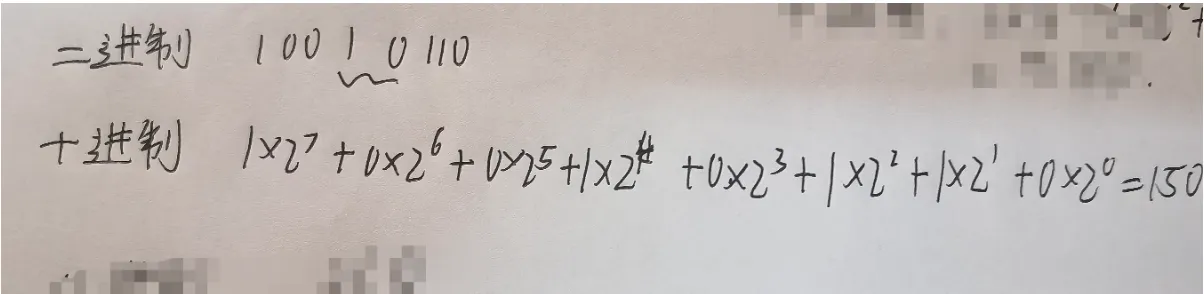 二进制 1001 0110
十进制 1×2⁷+0×2⁶+0×2⁵+1×2⁴+0×2³+1×2²+1×2¹+0×2⁰=150